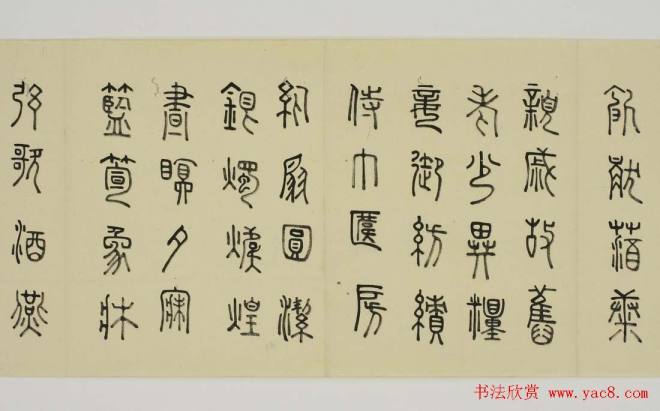 飢厭糟糠
親戚故舊
老少異糧
妾御紡績
侍巾房
紈扇圓潔
銀燭煒煌
晝眠夕寐
藍筍象牀
弦歌酒燕
书法欣赏 www.yac8.com